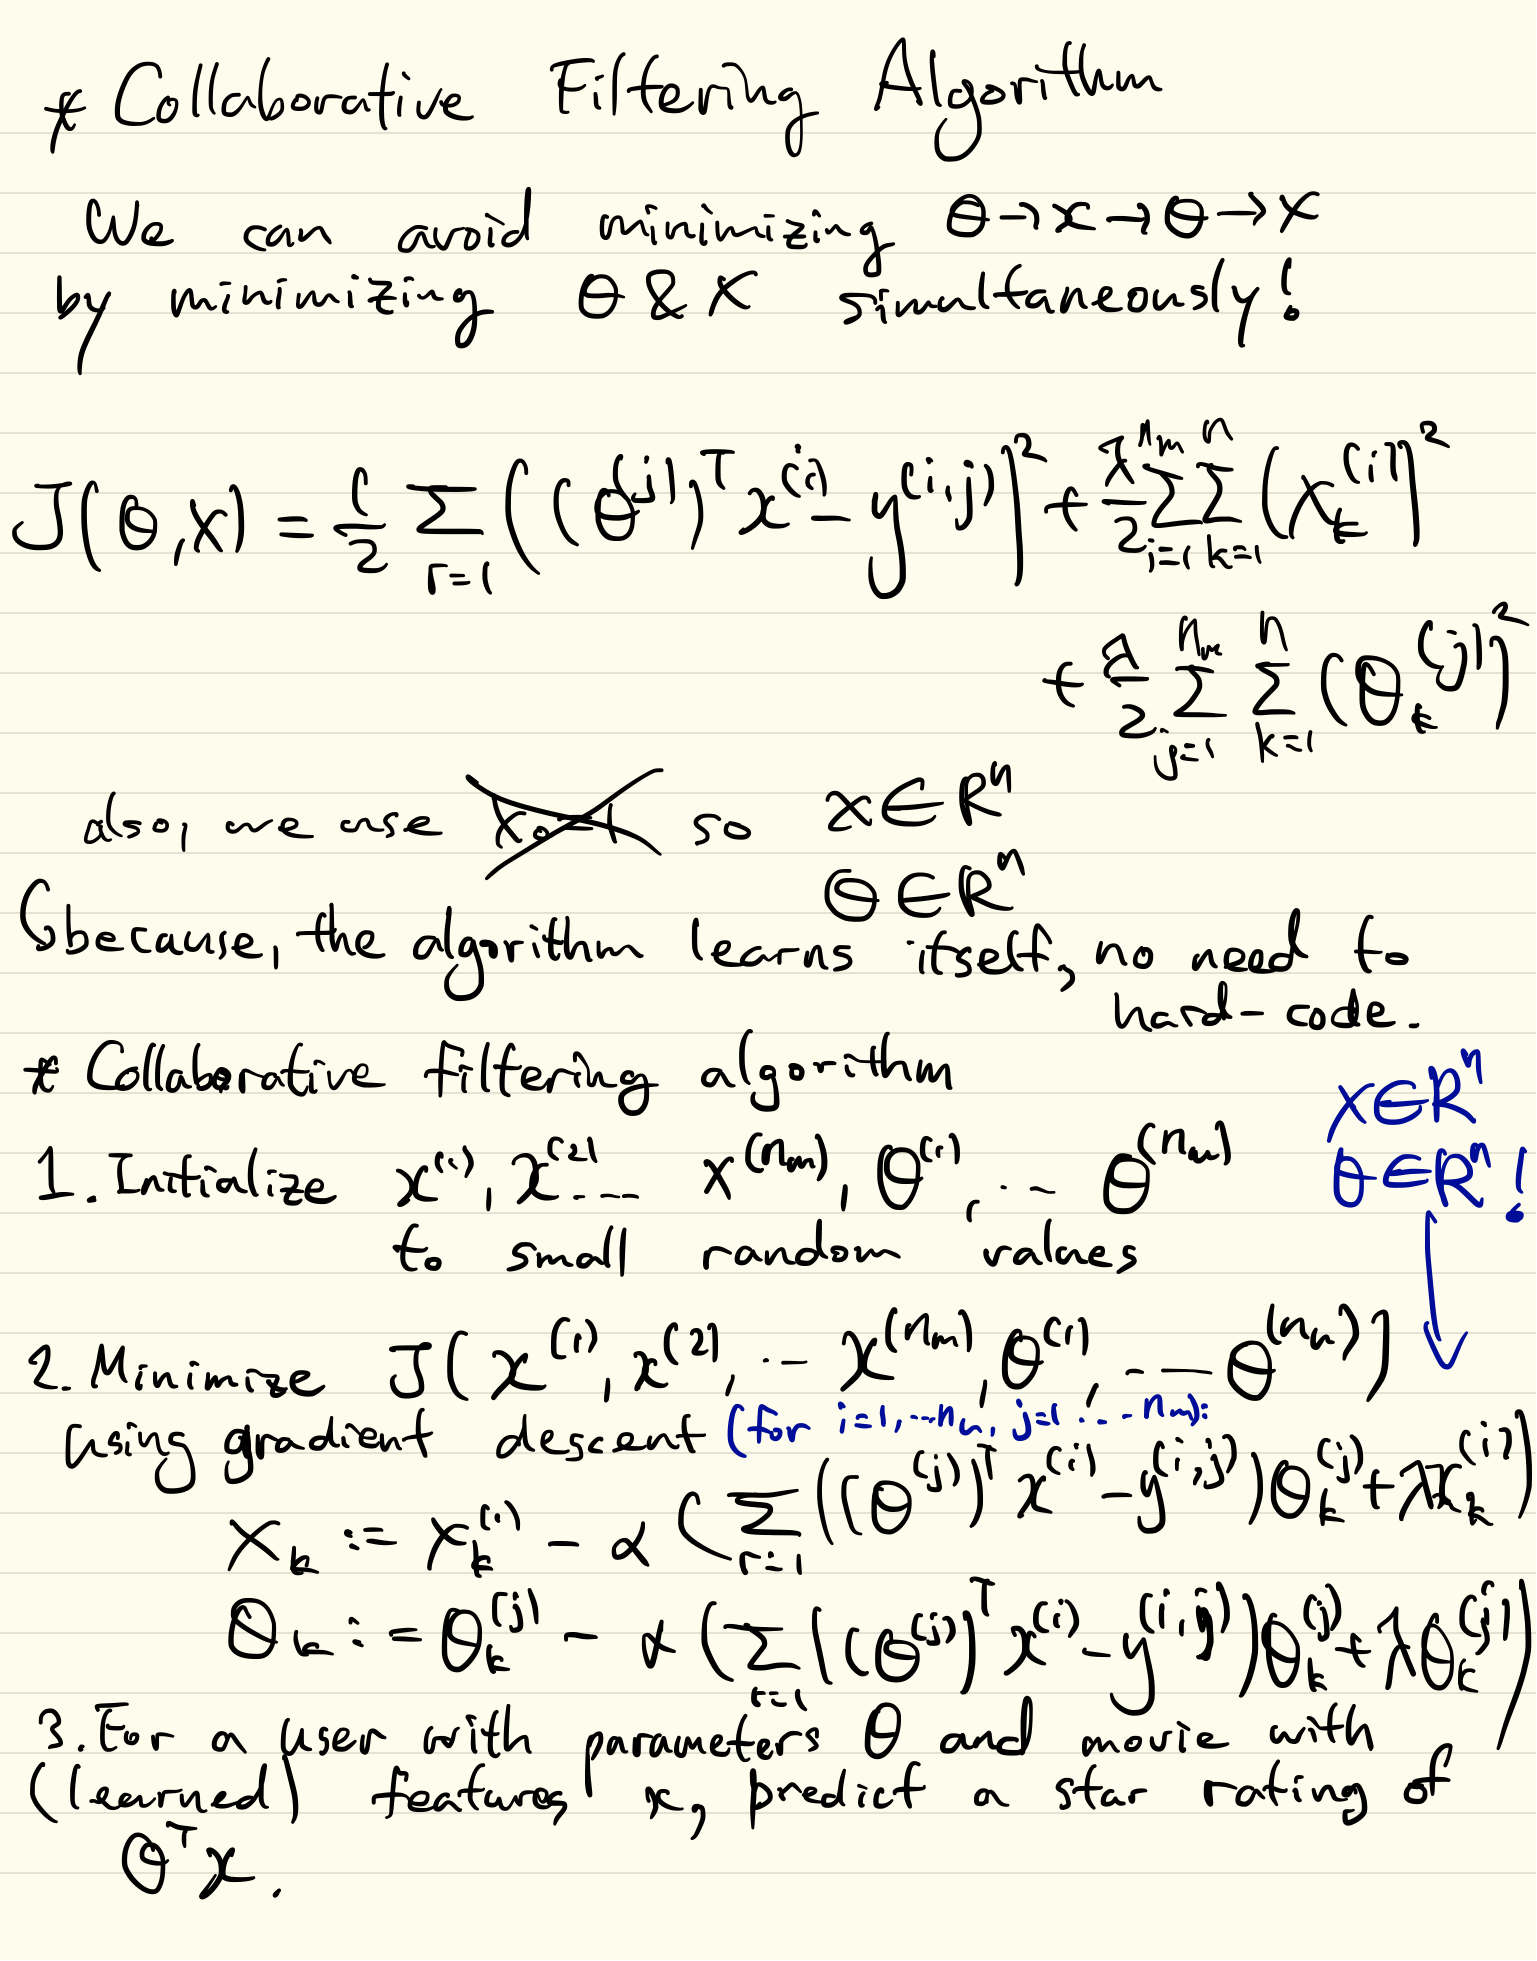 * Collaborative Filtering Algorithm
We can avoid minimizing θ→x→θ→x
by minimizing θ & x simultaneously!
J(θ,x) = 1/2 Σ_{r=1} ((θ^(j))^T x^(i) - y^(i,j))^2 + λ/2 Σ_{i=1}^{n_m} Σ_{k=1}^{n} (x_k^(i))^2
+ λ/2 Σ_{j=1}^{n_m} Σ_{k=1}^{n} (θ_k^(j))^2
also, we use x₀=1 so x∈R^n
θ∈R^n
because, the algorithm learns itself, no need to
hard-code.
* Collaborative filtering algorithm
x∈R^n
θ∈R^n!
1. Initialize x^(1), x^(2) ... x^(n_m), θ^(1), ... θ^(n_u)
to small random values
2. Minimize J(x^(1), x^(2), ... x^(n_m), θ^(1), ... θ^(n_u))
using gradient descent (for i=1,...n_u, j=1...n_m):
x_k := x_k^(i) - α (Σ_{r=1} ((θ^(j))^T x^(i) - y^(i,j)) θ_k^(j) + λx_k^(i))
θ_k := θ_k^(j) - α (Σ_{r=1} ((θ^(j))^T x^(i) - y^(i,j)) θ_k^(j) + λθ_k^(j))
3. For a user with parameters θ and movie with
(learned) features x, predict a star rating of
θ^T x.